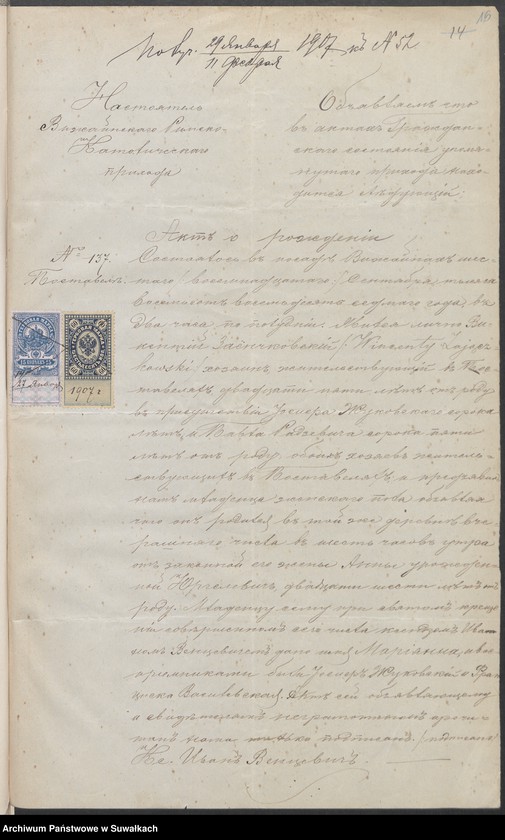 14
Получ. 29 Января 1907 къ N 52
11 Февраля
Настоятель
Вижайнскаго Римско-
Католическаго
прихода
Объявляетъ что
въ актахъ Граждан-
скаго состоянiя упомя-
нутаго прихода нахо-
дится слѣдующiй:
Актъ о рожденiи
№ 137.
Состоялось въ посадѣ Вижайнахъ шес-
таго / восемнадцатаго / Сентября, тысяча
восемьсотъ восемьдесять седмаго года, въ
два часа по полудни. Явился лично Ви-
кентiй / Wincenty Zającz-
kowski / хозяинъ жительствующiй въ
двадцати пяти лѣтъ отъ роду
въ присутствiи Жуковскаго сорока
лѣтъ и сорока пяти
лѣтъ отъ роду, обоихъ хозяевъ житель-
ствующихъ въ и предъявилъ
намъ младенца женскаго пола объявляя
что онъ родился въ той же деревнѣ вче-
рашняго числа въ шесть часовъ утра
отъ законной его жены Анны урожден-
ной двадцати шести лѣтъ отъ
роду. Младенцу сему при святомъ креще-
нiи совершенномъ сего числа ксендзомъ Ива-
номъ Венцевичемъ дано имя Марiянна, а вос-
прiемниками были Жуковскiй и Фран-
циска Василевская. Актъ сей объявляющему
и свидѣтелямъ неграмотнымъ прочи-
танъ нами подписанъ. / подписалъ /
Кс. Иванъ Венцевичъ.
27 Января
1907 г
60 60
Archiwum Państwowe w Suwałkach